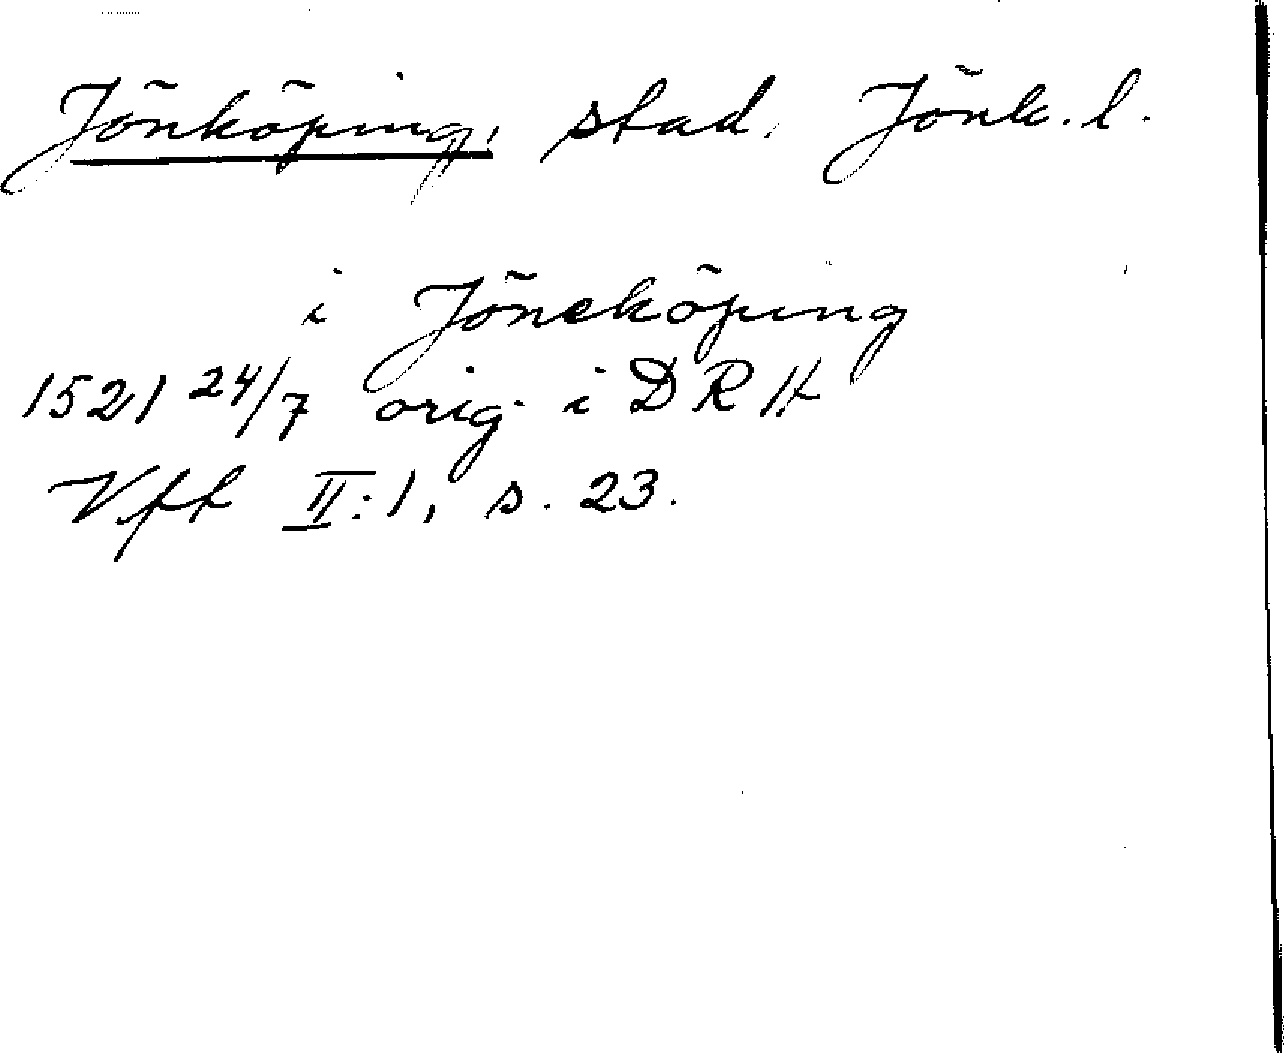 Jönköping, stad, Jönk. l.
i Jöneköping
1521 24/7 orig. i DRA
Vff II:1, s. 23.